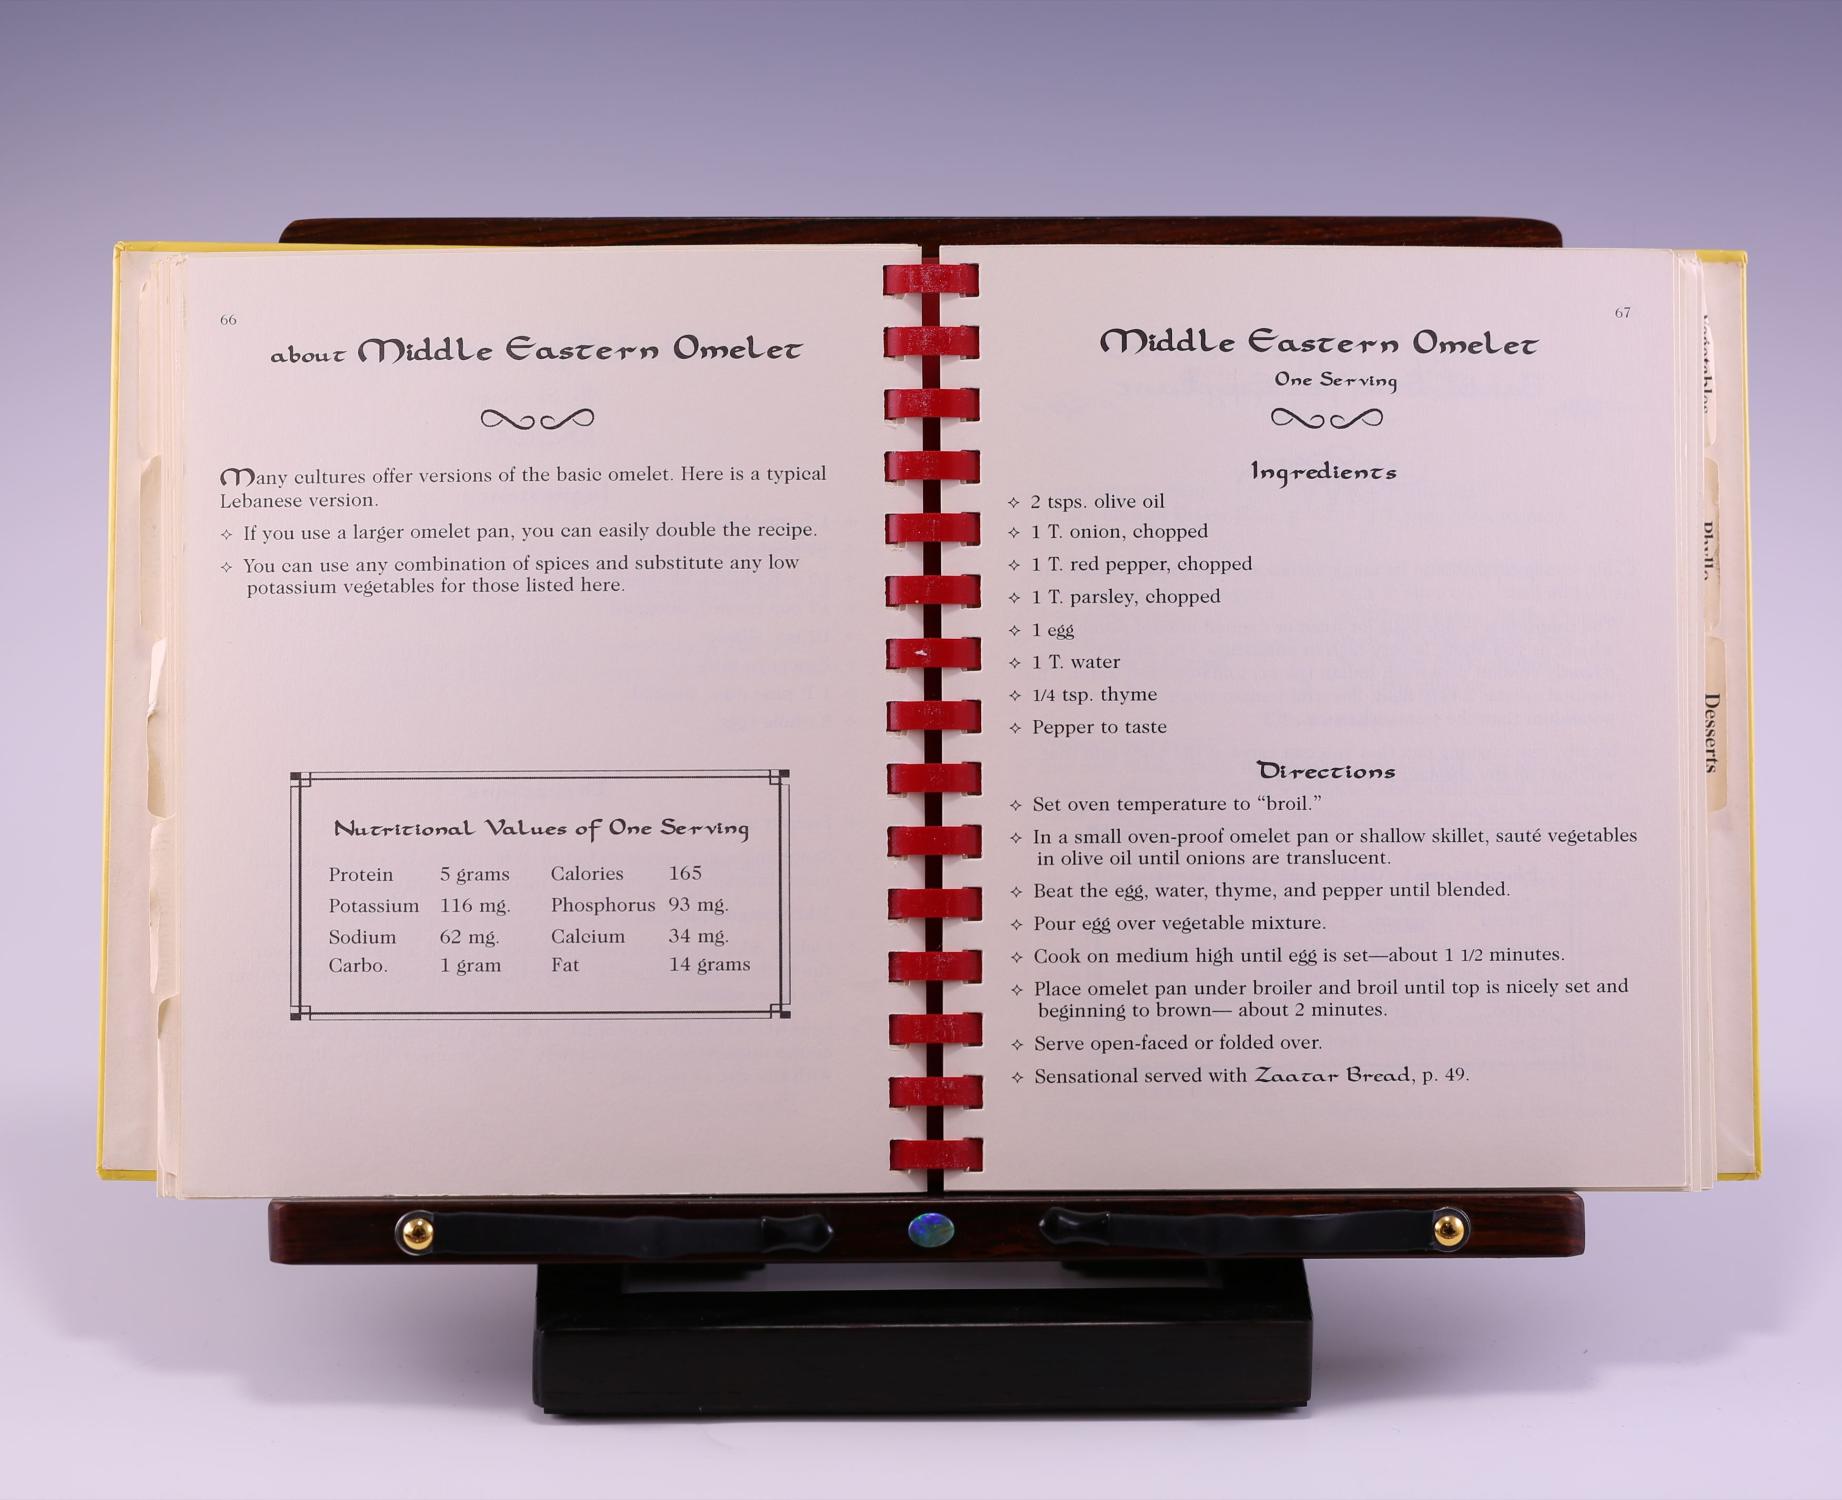 66
about Middle Eastern Omelet
Many cultures offer versions of the basic omelet. Here is a typical
Lebanese version.
✧ If you use a larger omelet pan, you can easily double the recipe.
✧ You can use any combination of spices and substitute any low
potassium vegetables for those listed here.
Nutritional Values of One Serving
Protein 5 grams Calories 165
Potassium 116 mg. Phosphorus 93 mg.
Sodium 62 mg. Calcium 34 mg.
Carbo. 1 gram Fat 14 grams
67
Middle Eastern Omelet
One Serving
Ingredients
✧ 2 tsps. olive oil
✧ 1 T. onion, chopped
✧ 1 T. red pepper, chopped
✧ 1 T. parsley, chopped
✧ 1 egg
✧ 1 T. water
✧ 1/4 tsp. thyme
✧ Pepper to taste
Directions
✧ Set oven temperature to “broil.”
✧ In a small oven-proof omelet pan or shallow skillet, sauté vegetables
in olive oil until onions are translucent.
✧ Beat the egg, water, thyme, and pepper until blended.
✧ Pour egg over vegetable mixture.
✧ Cook on medium high until egg is set—about 1 1/2 minutes.
✧ Place omelet pan under broiler and broil until top is nicely set and
beginning to brown— about 2 minutes.
✧ Serve open-faced or folded over.
✧ Sensational served with Zaatar Bread, p. 49.
Desserts